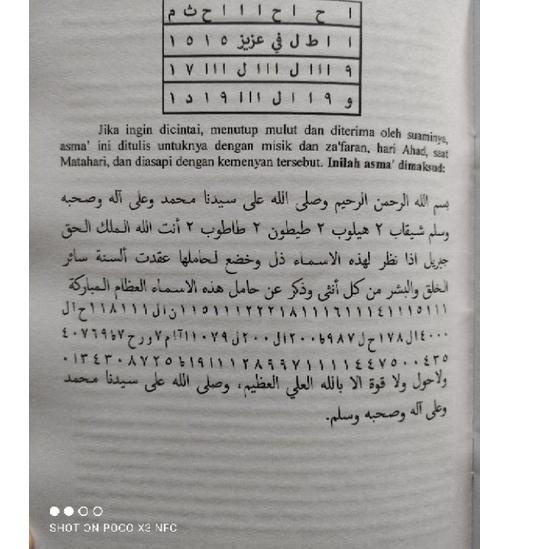 ا ح ا ح ا ا ا ح ث م
ا ا ط ل في عزيز ١ ٥ ١ ٥
٩ ا ا ا ل ا ا ا ل ا ا ا ٧ ١
و ٩ ا ا ل ا ا ا ١ ٩ د ١
Jika ingin dicintai, menutup mulut dan diterima oleh suaminya,
asma' ini ditulis untuknya dengan misik dan za'faran, hari Ahad, saat
Matahari, dan diasapi dengan kemenyan tersebut. Inilah asma' dimaksud:
بسم الله الرحمن الرحيم وصلى الله على سيدنا محمد وعلى آله وصحبه
وسلم شيقاب ٢ هيلوب ٢ طيطون ٢ طاطوب ٢ أنت الله الملك الحق
جبريل اذا نظر لهذه الاسماء ذل وخضع لحاملها عقدت ألسنة سائر
الخلق والبشر من كل أنثى وذكر عن حامل هذه الاسماء العظام المباركة
ولاحول ولا قوة الا بالله العلي العظيم، وصلى الله على سيدنا محمد
وعلى آله وصحبه وسلم.
SHOT ON POCO X3 NFC